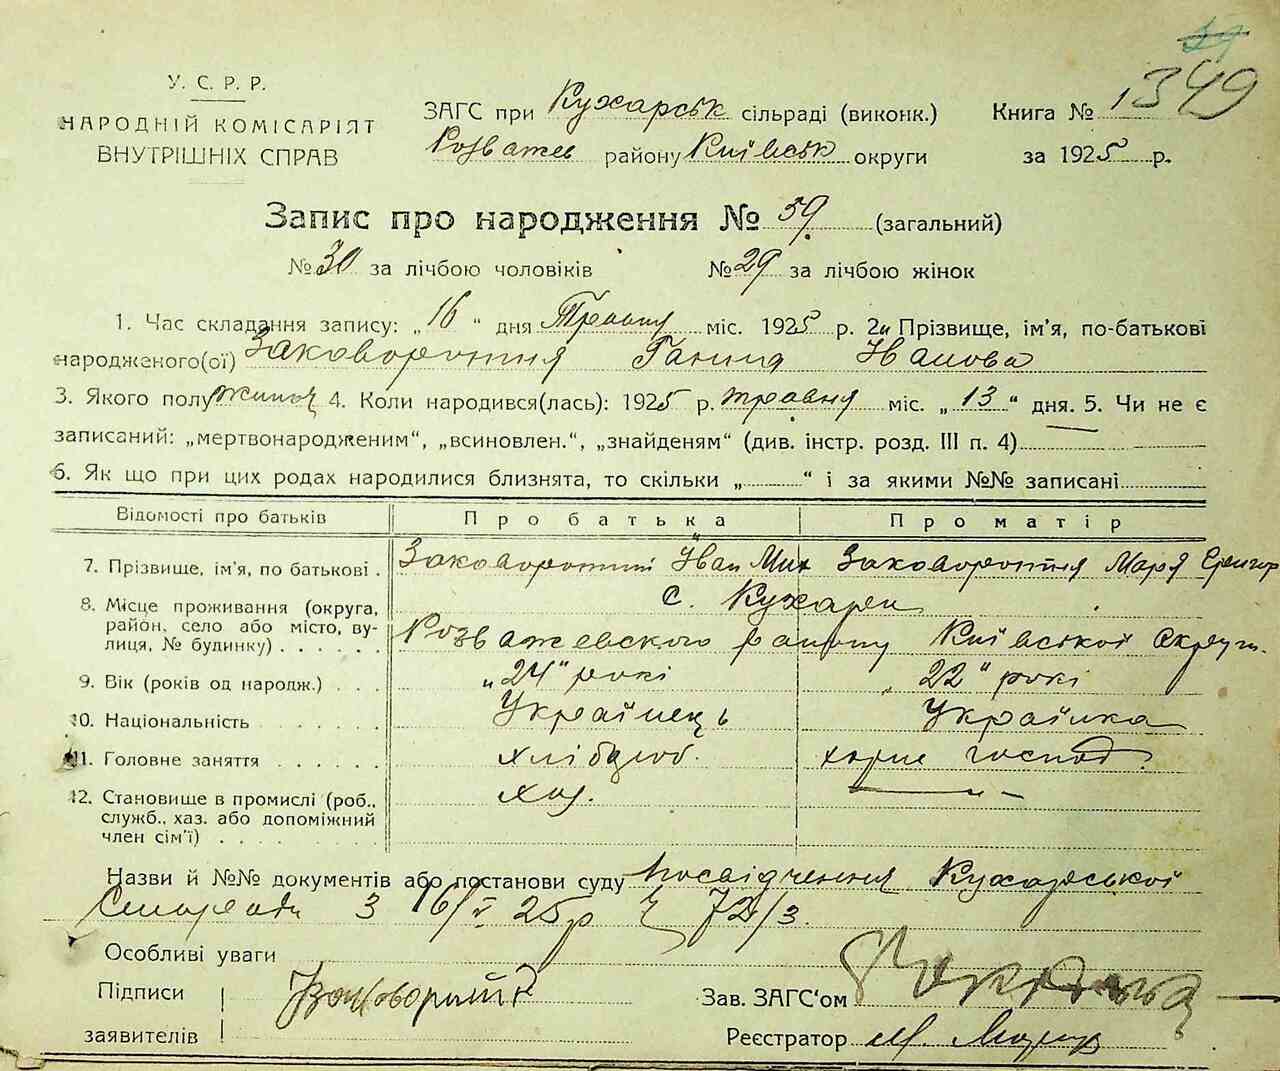 29
У. С. Р. Р.
НАРОДНІЙ КОМІСАРІЯТ
ВНУТРІШНІХ СПРАВ
ЗАГС при Кухарськ сільраді (виконк.)
Розважев району Київськ округи
Книга № 1349
за 1925 р.
Запис про народження № 59. (загальний)
№ 30 за лічбою чоловіків № 29 за лічбою жінок
1. Час складання запису: „16“ дня Травня міс. 1925 р. 2. Прізвище, ім'я, по-батькові
народженого(ої) Заковоротня Ганна Іванова
3. Якого полу жіноч 4. Коли народився(лась): 1925 р. травня міс. „13“ дня. 5. Чи не є
записаний: „мертвонародженим“, „всиновлен.“, „знайденям“ (див. інстр. розд. III п. 4)
6. Як що при цих родах народилися близнята, то скільки „ “ і за якими №№ записані
Відомості про батьків Про батька Про матір
7. Прізвище, ім'я, по батькові . Заковоротний Іван Мих Заковоротня Марія Григор
8. Місце проживання (округа, район, село або місто, вулиця, № будинку) . . . . . . с. Кухари
Розважевского району Київської Округи.
9. Вік (років од народж.) . . . „24“ рокі „22“ рокі
10. Національність . . . . . . Українець Українка
11. Головне заняття . . . . . . хлібороб. господ.
12. Становище в промислі (роб., служб., хаз. або допоміжний член сім'ї) . . . . . . . . хаз. —
Назви й №№ документів або постанови суду Посвідчення Кухарської
Сільради з 16/V 25р ч 72/3.
Особливі уваги
Підписи
заявителів
Зав. ЗАГС'ом
Реєстратор М.